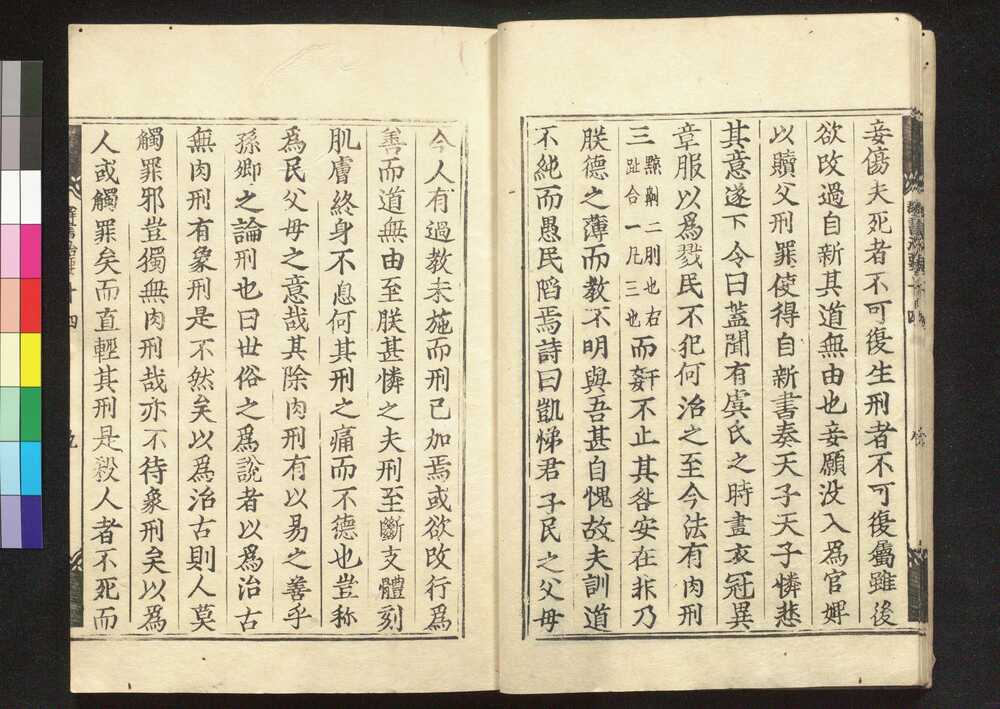 妾傷夫死者不可復生刑者不可復屬雖後
欲改過自新其道無由也妾願沒入為官婢
以贖父刑罪使得自新書奏天子天子憐悲
其意遂下令曰蓋聞有虞氏之時畫衣冠異
章服以為戮民不犯何治之至今法有肉刑
三黥劓二刖也右趾合一凡三也而姦不止其咎安在非乃
朕德之薄而教不明與吾甚自愧故夫訓道
不純而愚民陷焉詩曰凱悌君子民之父母
今人有過教未施而刑已加焉或欲改行為
善而道無由至朕甚憐之夫刑至斷支體刻
肌膚終身不息何其刑之痛而不德也豈稱
為民父母之意哉其除肉刑有以易之善乎
孫卿之論刑也曰世俗之為說者以為治古
無肉刑有象刑是不然矣以為治古則人莫
觸罪邪豈獨無肉刑哉亦不待象刑矣以為
人或觸罪矣而直輕其刑是殺人者不死而
群書治要 十四
九